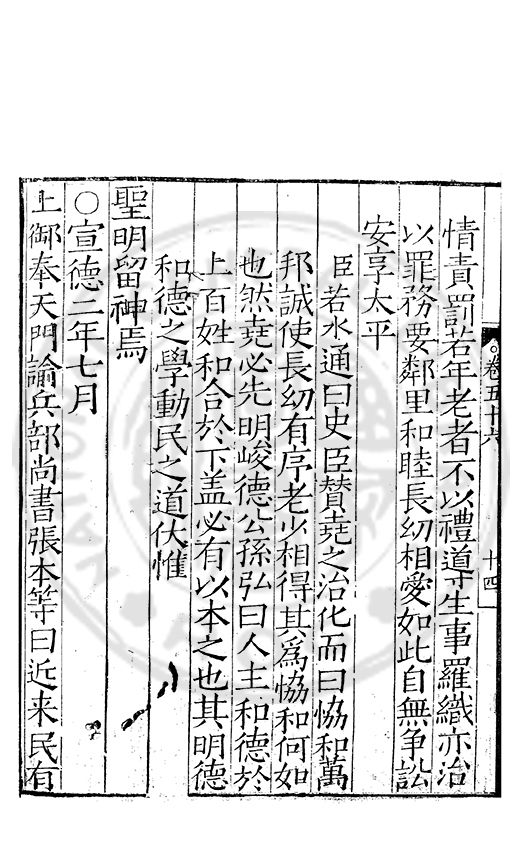 卷五十六
十四
情責罰若年老者不以禮導生事羅織亦治
以罪務要鄰里和睦長幼相愛如此自無争訟
安享太平
臣若水通曰史臣賛堯之治化而曰恊和萬
邦誠使長幼有序老少相得其為恊和何如
也然堯必先明峻德公孫弘曰人主和德於
上百姓和合於下盖必有以本之也其明德
和德之學動民之道伏惟
聖明留神焉
○宣德二年七月
上御奉天門諭兵部尚書張本等曰近来民有